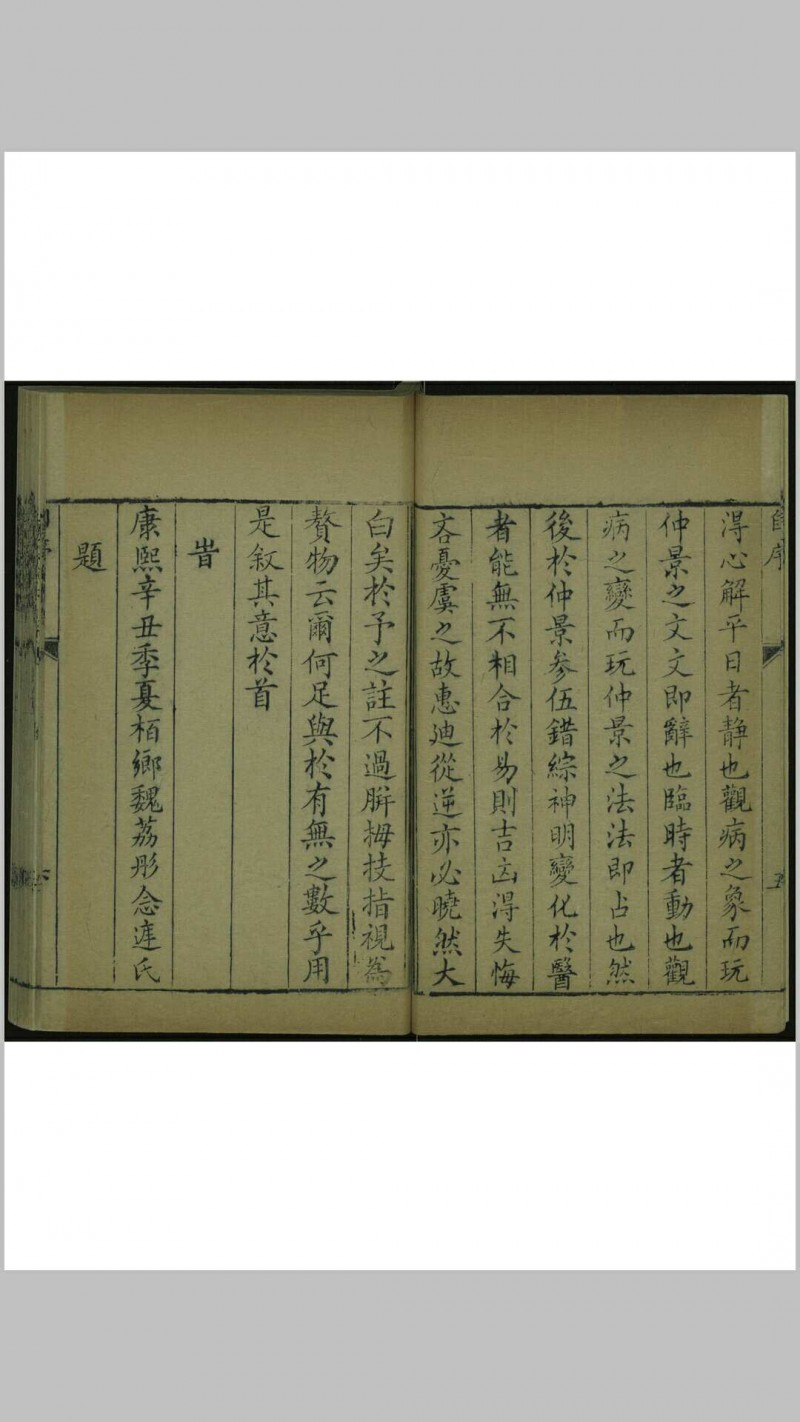 自序
得心解平日者靜也觀病之象而玩
仲景之文文即辭也臨時者動也觀
病之變而玩仲景之法法即占也然
後於仲景參伍錯綜神明變化於醫
者能無不相合於易則吉凶得失悔
吝憂虞之故惠迪從逆亦必曉然大
白矣於予之註不過駢拇技指視為
贅物云爾何足與於有無之數乎用
是叙其意於首
旹
康熙辛丑季夏栢鄉魏荔彤念莚氏
題